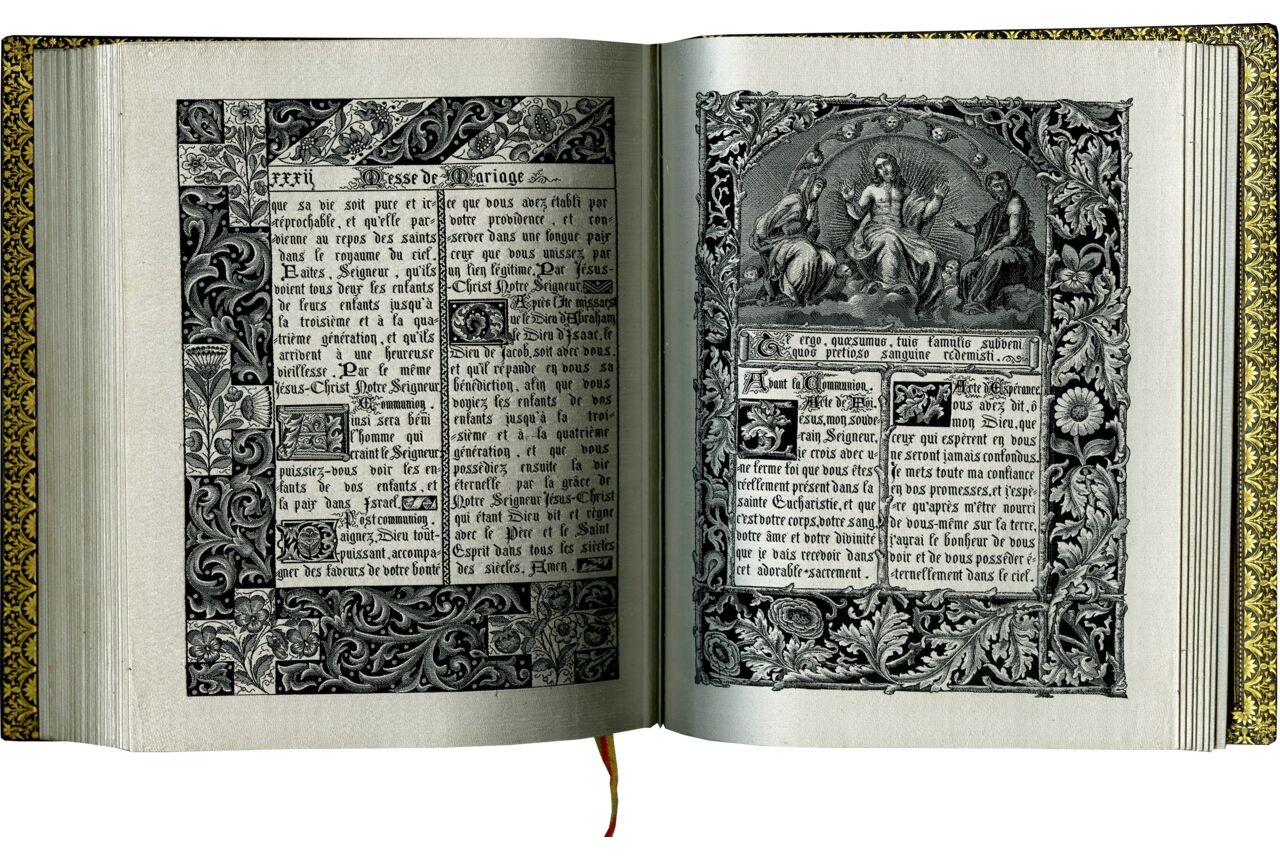 xxxij Messe de Mariage
que sa vie soit pure et ir-
réprochable, et qu'elle par-
vienne au repos des saints
dans le royaume du ciel.
Faites, Seigneur, qu'ils
voient tous deux les enfants
de leurs enfants jusqu'à
la troisième et à la qua-
trième génération, et qu'ils
arrivent à une heureuse
vieillesse. Par le même
Jésus-Christ Notre Seigneur
Communion.
Ainsi sera béni
l'homme qui
craint le Seigneur
puissiez-vous voir les en-
fants de vos enfants, et
la paix dans Israel.
Postcommunion.
Daignez, Dieu tout-
puissant, accompa-
gner des faveurs de votre bonté
ce que vous avez établi par
votre providence, et con-
server dans une longue paix
ceux que vous unissez par
un lien légitime. Par Jésus-
Christ Notre Seigneur.
Après l'Ite missa est
Que le Dieu d'Abraham
le Dieu d'Isaac, le
Dieu de Jacob, soit avec vous,
et qu'il répande en vous sa
bénédiction, afin que vous
voyiez les enfants de vos
enfants jusqu'à la troi-
sième et à la quatrième
génération, et que vous
possédiez ensuite la vie
éternelle par la grâce de
Notre Seigneur Jésus-Christ
qui étant Dieu vit et règne
avec le Père et le Saint
Esprit dans tous les siècles
des siècles. Amen.
Te ergo, quæsumus, tuis famulis subveni
quos pretioso sanguine redemisti.
Avant la Communion.
Acte de Foi.
Jésus, mon souve-
rain Seigneur,
je crois avec u-
ne ferme foi que vous êtes
réellement présent dans la
sainte Eucharistie, et que
c'est votre corps, votre sang,
votre âme et votre divinité
que je vais recevoir dans
cet adorable sacrement.
Acte d'Espérance.
Vous avez dit, ô
mon Dieu, que
ceux qui espèrent en vous
ne seront jamais confondus.
Je mets toute ma confiance
en vos promesses, et j'espè-
re qu'après m'être nourri
de vous-même sur la terre,
j'aurai le bonheur de vous
voir et de vous posséder é-
ternellement dans le ciel.